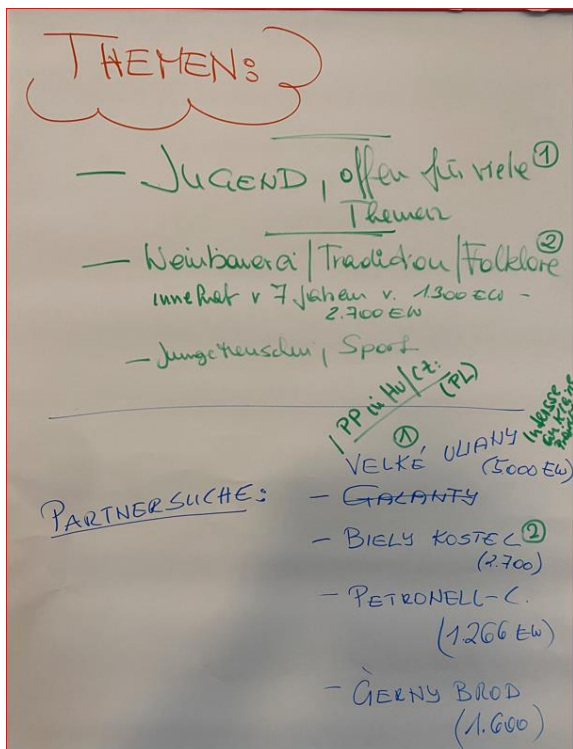 THEMEN:
— JUGEND, offen für viele ①
Themen
— Weinbauerei / Tradition / Folklore ②
innerhat v 7 Jahren v. 1.300 EW -
2.700 EW
— Junge Menschen, Sport
1 PP in HU/CZ:
(PL)
Interesse
an kleine
①
VELKÉ ULIANY
(5000 EW)
PARTNERSUCHE:
- GALANTY
- BIELY KOSTEL ②
(2.700)
- PETRONELL-C.
(1.266 EW)
- ČERNY BROD
(1.600)